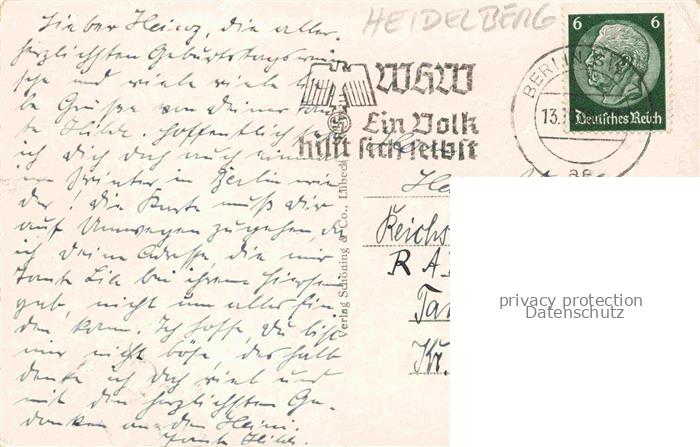 HEIDELBERG
Lieber Heinz, die aller-
herzlichsten Geburtstagswün-
sche und viele viele lie-
be Grüsse von deiner Tan-
te Hilde. Hoffentlich
ich dich doch auch einmal
im Winter in Berlin wie-
der! Die Karte muß dir
auf Umwegen zugehen, da
ich deine Adresse, die mir
Tante Lile bei ihrem Hiersein
gab, nicht um alles fin-
den kann. Ich hoffe, du bist
mir nicht böse, deshalb
denke ich dich viel und
mit den herzlichsten Ge-
danken an den Heini.
Tante Hilde.
WHW
Ein Volk
hilft sich selbst
BERLIN
13.
6 6
Deutsches Reich
Verlag Schöning & Co., Lübeck
Reichs
R A
Tan
Kr.
privacy protection
Datenschutz